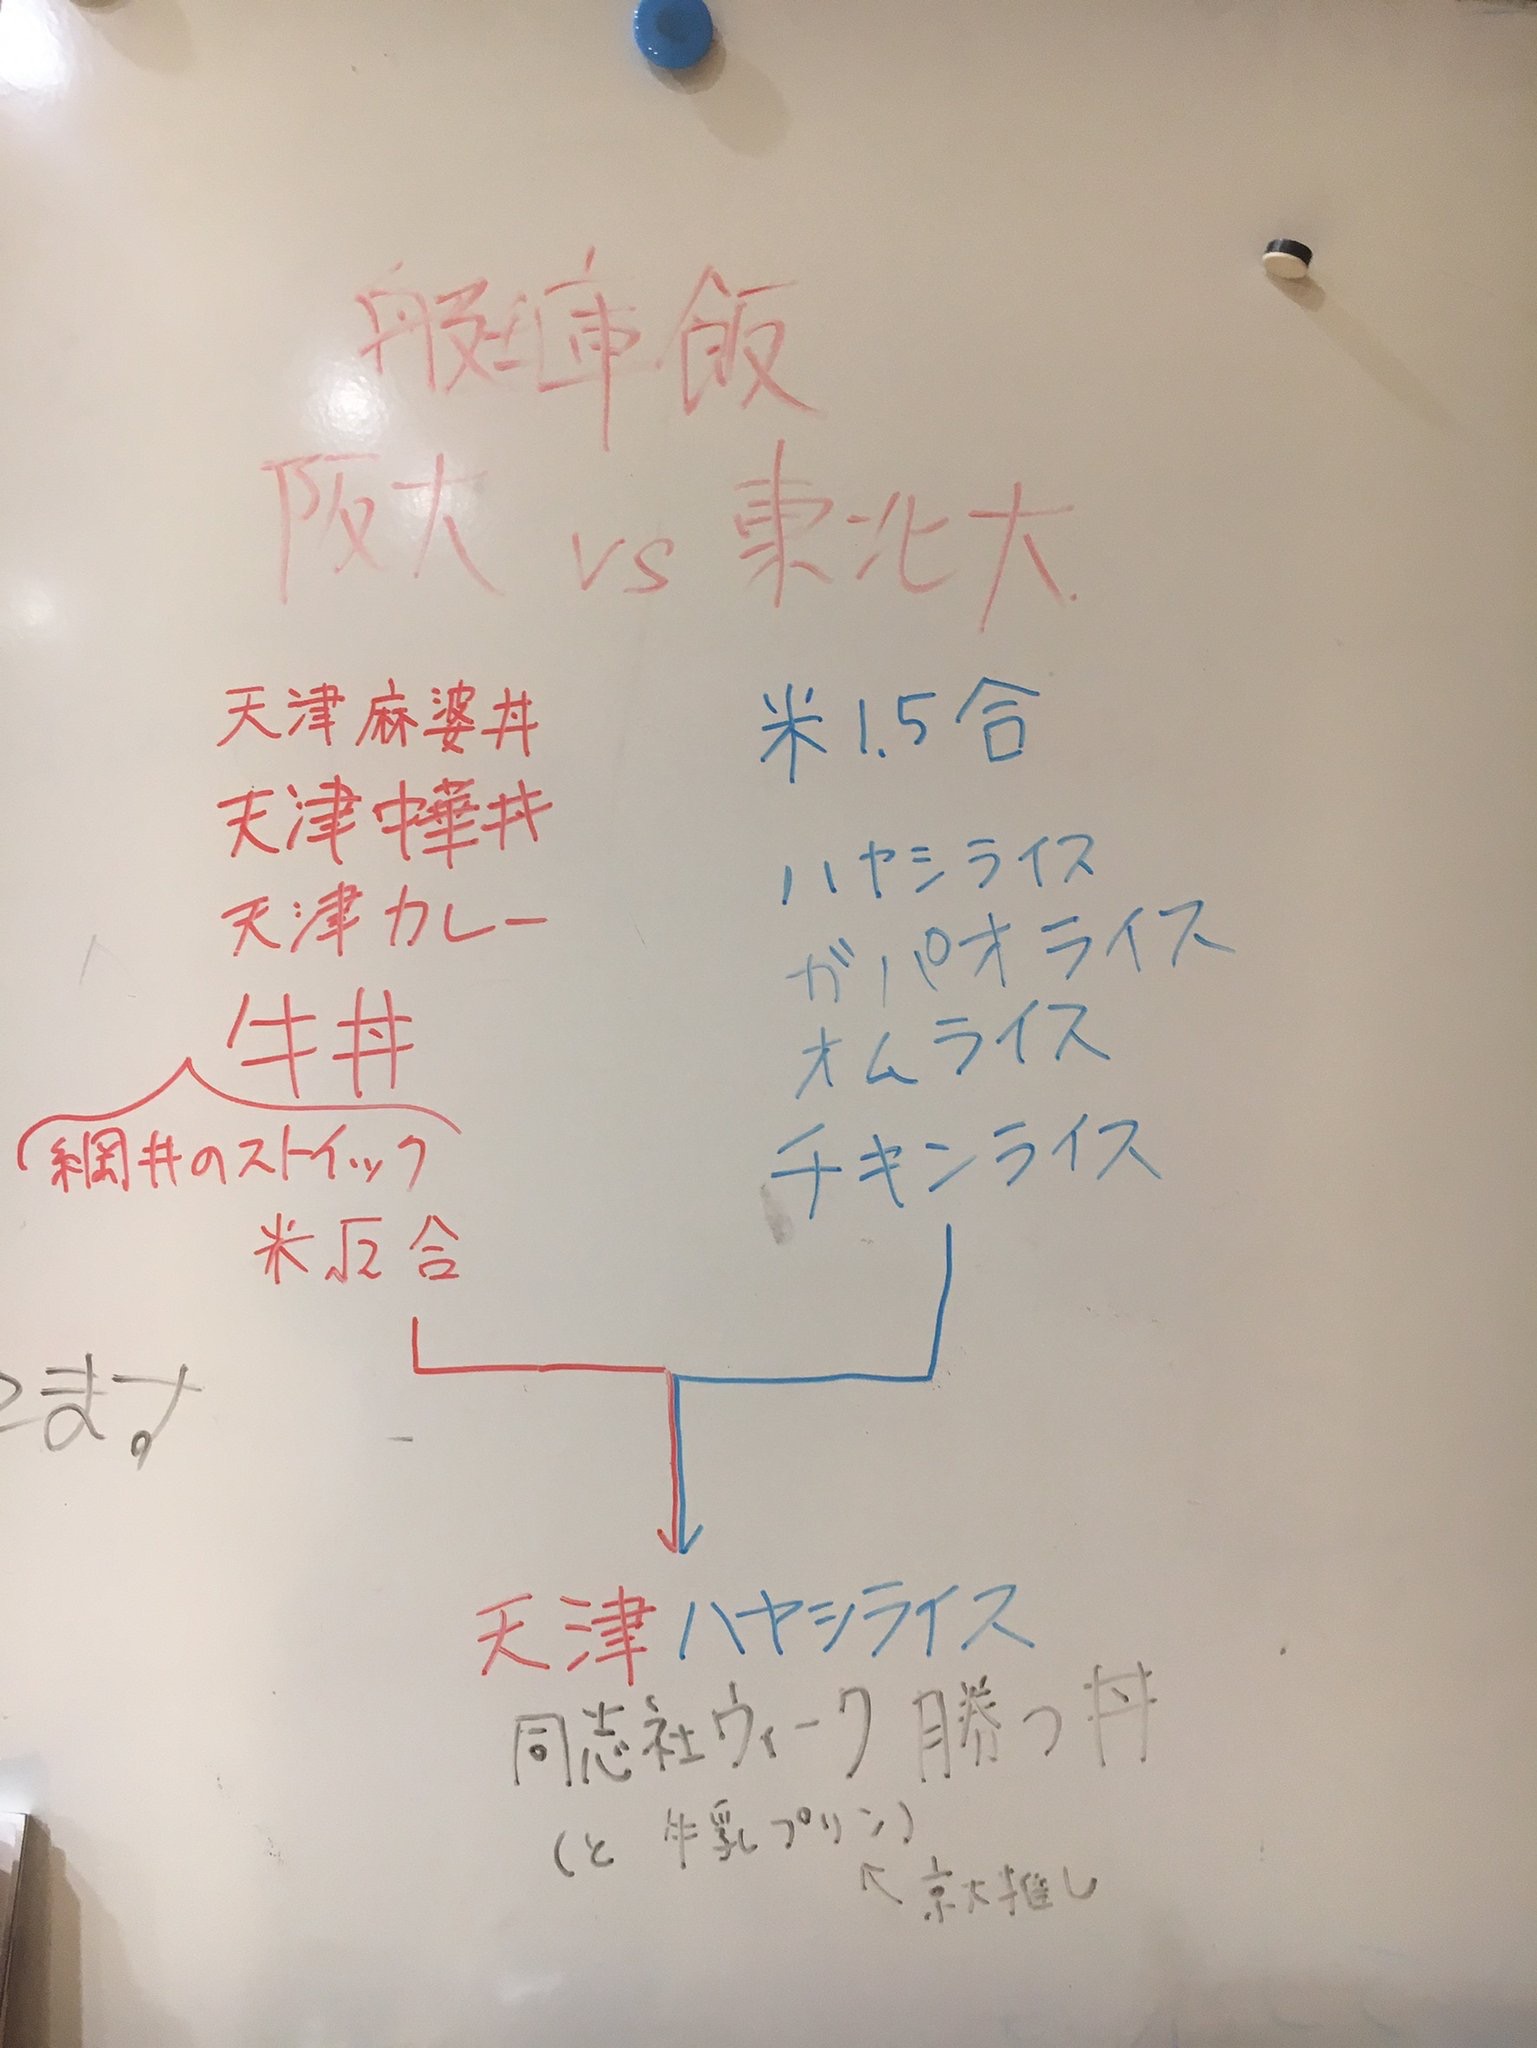 艇庫飯
阪大 vs 東北大
天津麻婆丼
天津中華丼
天津カレー
牛丼
綱井のストイック
米√2合
米1.5合
ハヤシライス
ガパオライス
オムライス
チキンライス
ます。
天津ハヤシライス
同志社ウィーク 勝つ丼
(と 牛乳プリン)
↖ 京大推し